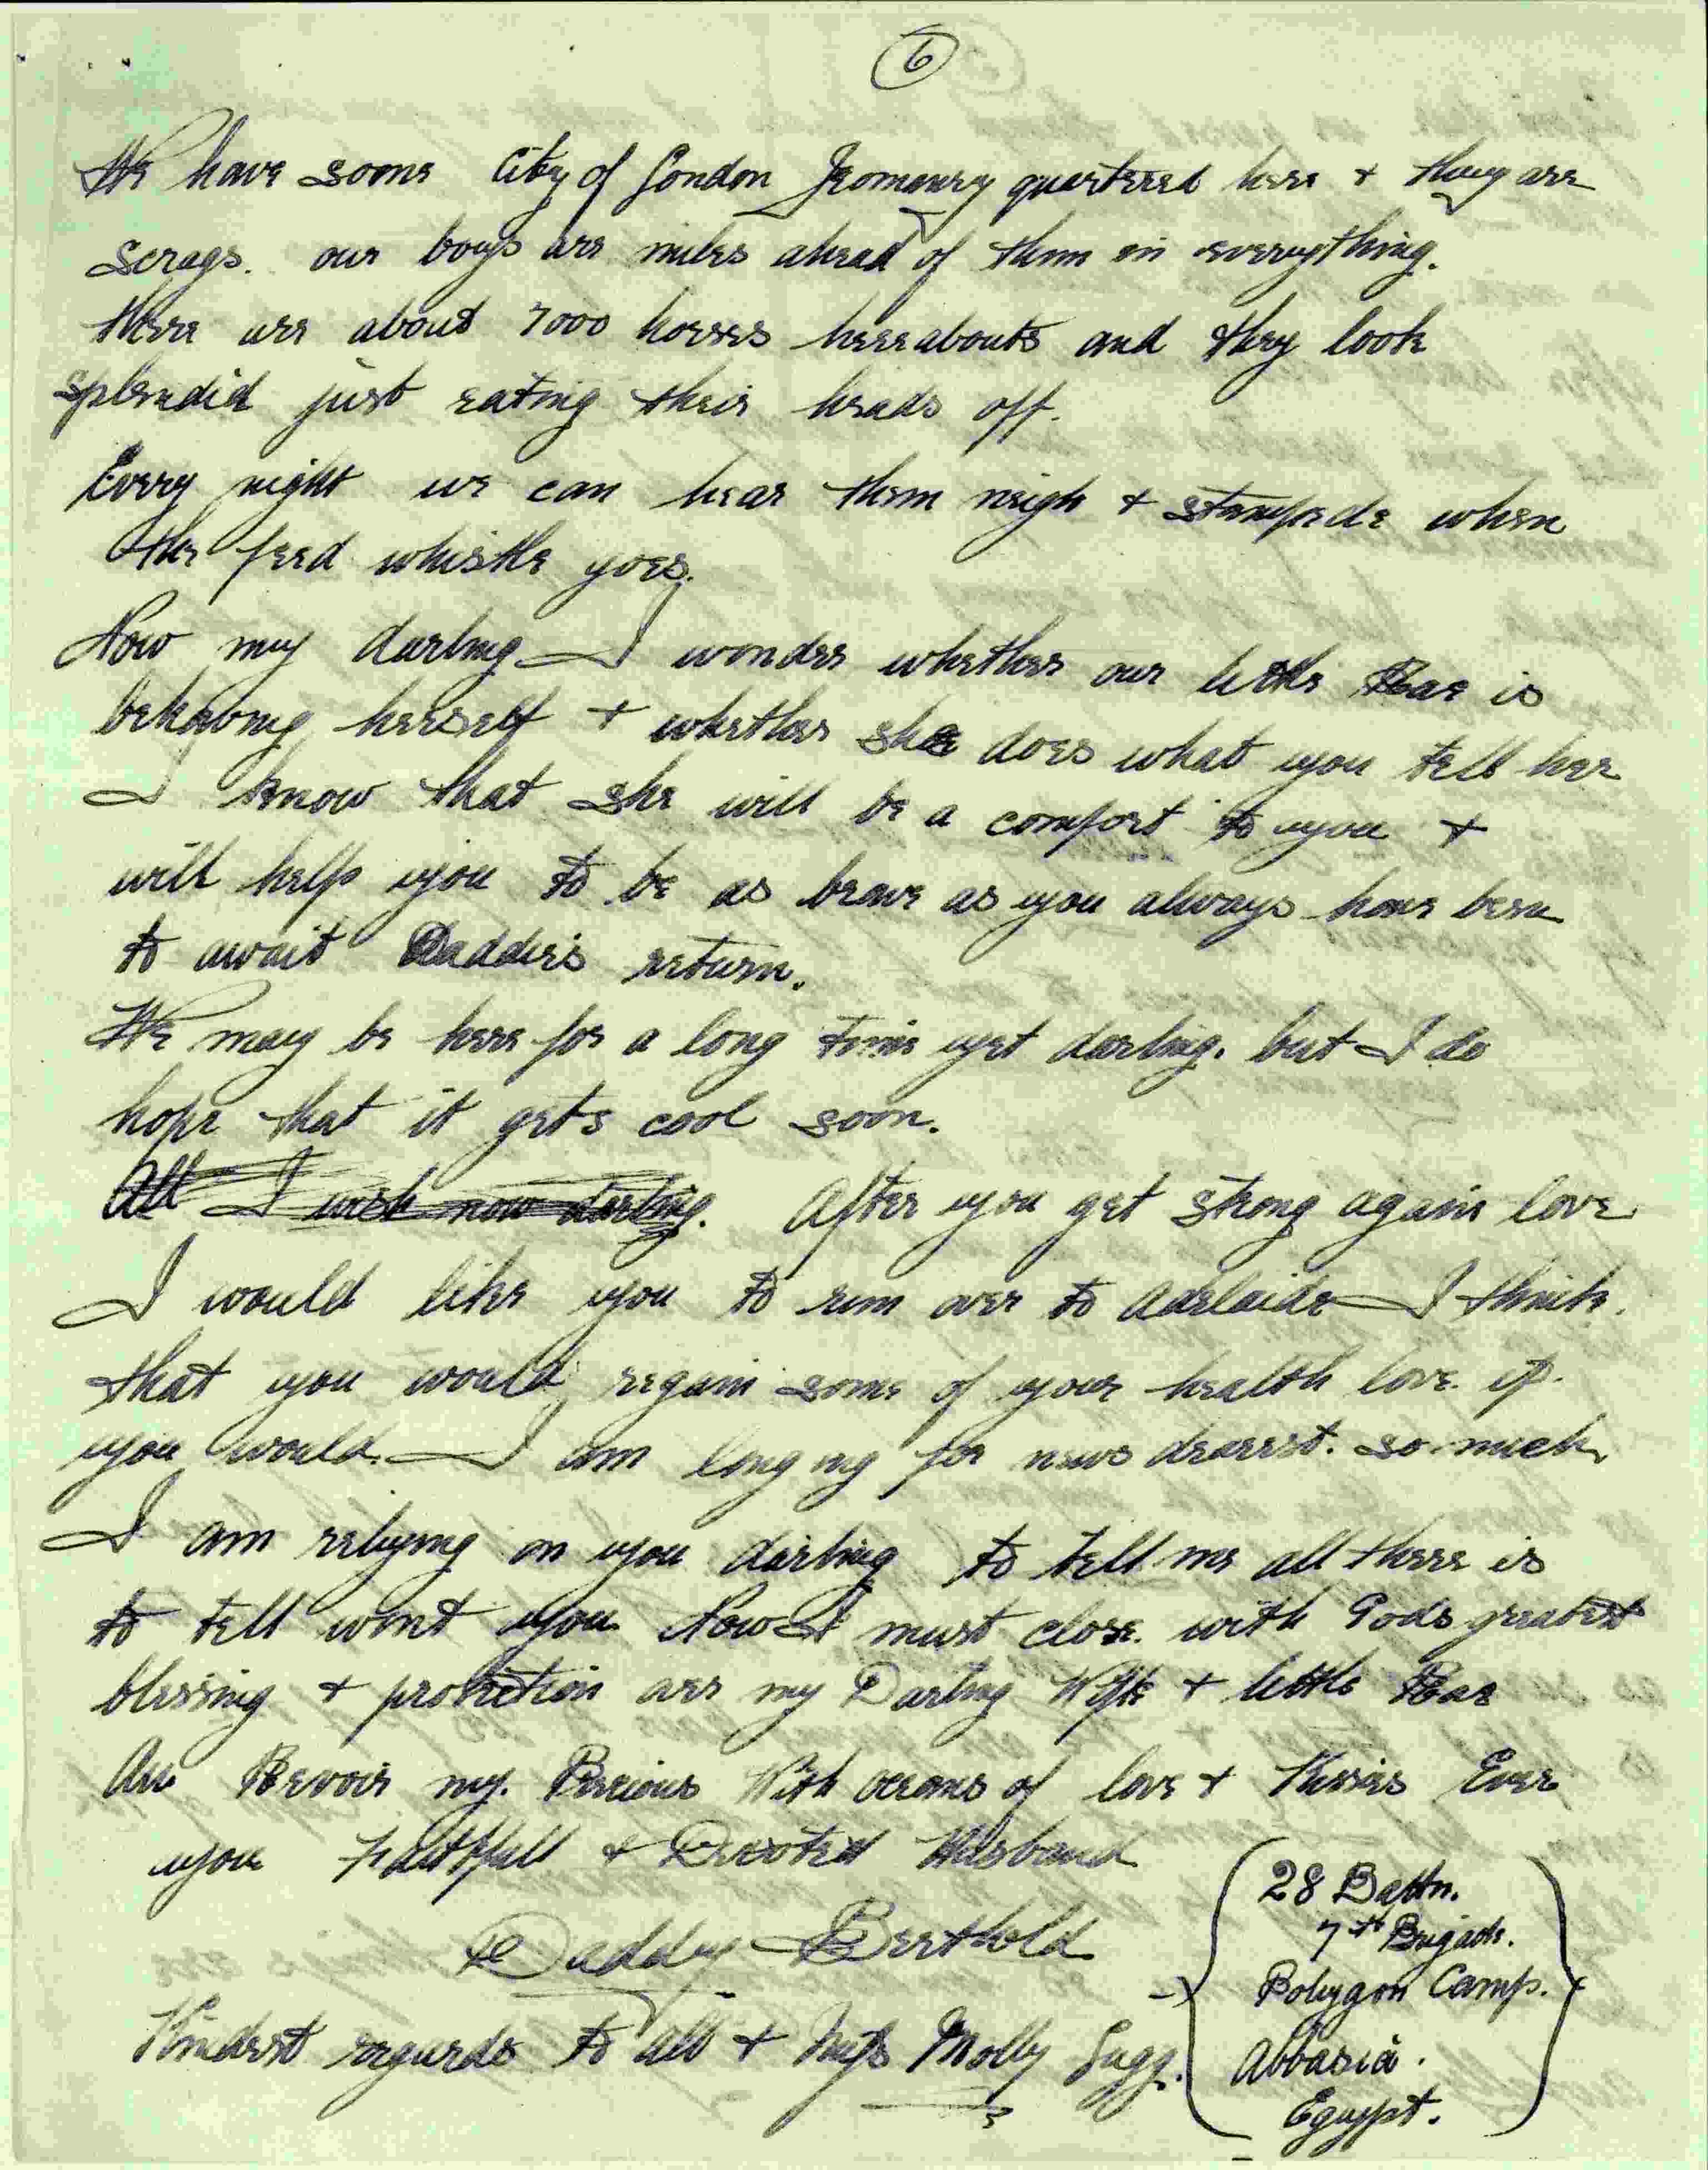 6
We have some City of London Yeomanry quartered here + they are
scrags. our boys are miles ahead of them in everything.
there are about 7000 horses hereabouts and they look
splendid just eating their heads off.
Every night we can hear them neigh + stampede when
the feed whistle goes.
Now my darling I wonder whether our little Rae is
behaving herself + whether she does what you tell her
I know that she will be a comfort to you +
will help you to be as brave as you always have been
to await Daddie's return.
We may be here for a long time yet darling. but I do
hope that it gets cool soon.
All I wish now darling. After you get strong again love
I would like you to run over to Adelaide I think.
that you would regain some of your health love if.
you would. I am longing for news dearest. so much
I am relying on you darling to tell me all there is
to tell wont you. Now I must close. with Gods greatest
blessing + protection are my Darling Wife + little Rae
Au Revoir my. Precious With oceans of love + Kisses Ever
you Faithfull + Devoted Husband
Daddy Berthold
Kindest regards to all + Molly
28 Battn.
7th Brigade.
Polygon Camp.
Abbasia.
Egypt.